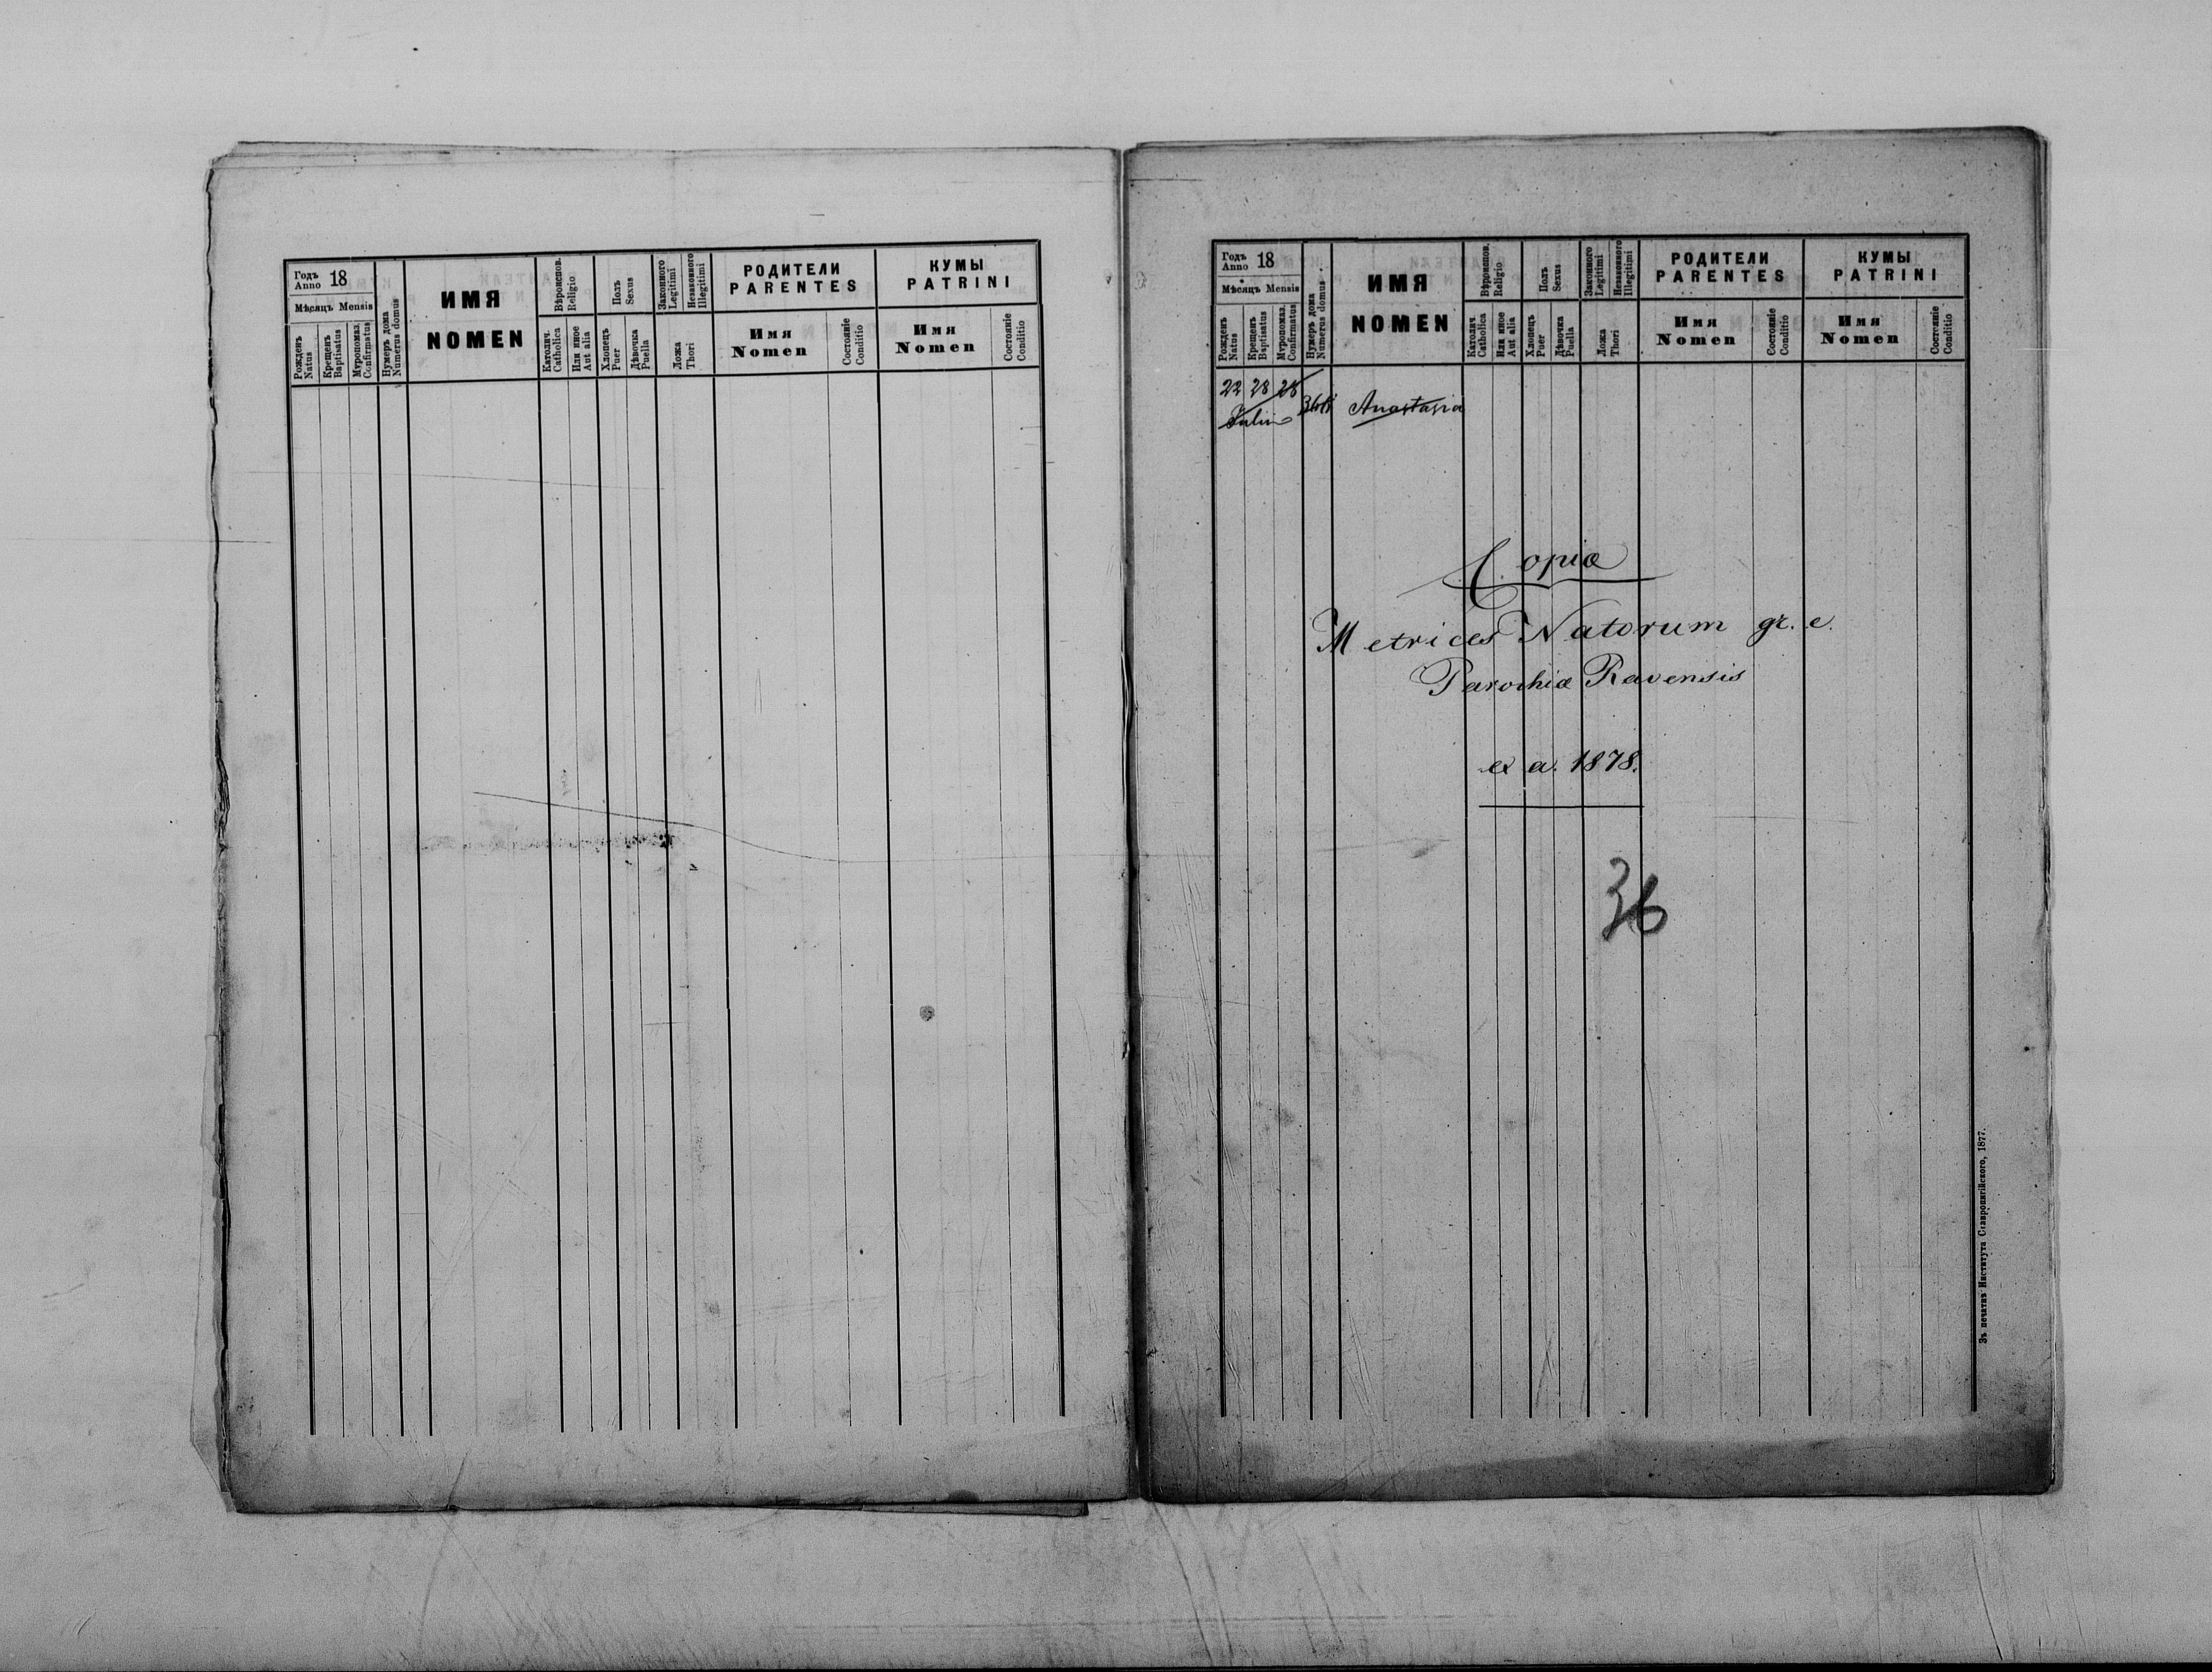 Годъ Anno 18
Мѣсяцъ Mensis
Рожденъ Natus
Крещенъ Baptisatus
Мѵропомаз. Confirmatus
Нумеръ дома Numerus domus
ИМЯ
NOMEN
Вѣроиспов. Religio
Католич. Catholica
Или иное Aut alia
Полъ Sexus
Хлопецъ Puer
Дѣвочка Puella
Законного Legitimi
Незаконного Illegitimi
Ложа Thori
РОДИТЕЛИ
PARENTES
Имя
Nomen
Состояніе Conditio
КУМЫ
PATRINI
Имя
Nomen
Состояніе Conditio
Годъ Anno 18
Мѣсяцъ Mensis
Рожденъ Natus
Крещенъ Baptisatus
Мѵропомаз. Confirmatus
Нумеръ дома Numerus domus
ИМЯ
NOMEN
Вѣроиспов. Religio
Католич. Catholica
Или иное Aut alia
Полъ Sexus
Хлопецъ Puer
Дѣвочка Puella
Законного Legitimi
Незаконного Illegitimi
Ложа Thori
РОДИТЕЛИ
PARENTES
Имя
Nomen
Состояніе Conditio
КУМЫ
PATRINI
Имя
Nomen
Состояніе Conditio
22 28 28
Julii Anastasia
Copia
Metrices Natorum gr. c.
Parochiæ Ravensis
ex a. 1878.
36
Зъ печатнѣ Института Ставропигійского, 1877.